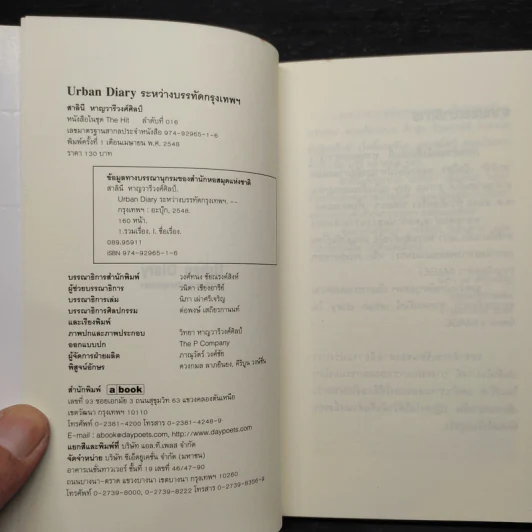 Urban Diary ระหว่างบรรทัดกรุงเทพฯ
สาลินี หาญวารีวงศ์ศิลป์
หนังสือในชุด The Hit ลำดับที่ 016
เลขมาตรฐานสากลประจำหนังสือ 974-92965-1-6
พิมพ์ครั้งที่ 1 เดือนเมษายน พ.ศ. 2548
ราคา 130 บาท
ข้อมูลทางบรรณานุกรมของสำนักหอสมุดแห่งชาติ
สาลินี หาญวารีวงศ์ศิลป์.
Urban Diary ระหว่างบรรทัดกรุงเทพฯ. --
กรุงเทพฯ : อะบุ๊ก, 2548.
160 หน้า.
1.รวมเรื่อง. I. ชื่อเรื่อง.
089.95911
ISBN 974-92965-1-6
บรรณาธิการสำนักพิมพ์ วงศ์ทนง ชัยณรงค์สิงห์
ผู้ช่วยบรรณาธิการ วนิดา เชียงอารีย์
บรรณาธิการเล่ม นิภา เผ่าศรีเจริญ
บรรณาธิการศิลปกรรม ต่อพงษ์ เสถียรกานนท์
และเรียงพิมพ์
ภาพปกและภาพประกอบ วิทยา หาญวารีวงศ์ศิลป์
ออกแบบปก The P Company
ผู้จัดการฝ่ายผลิต ภาณุวัตร์ วงศ์ชัย
พิสูจน์อักษร ดวงกมล
สำนักพิมพ์ a book
เลขที่ 93 ซอยเอกมัย 3 ถนนสุขุมวิท 63 แขวงคลองตันเหนือ
เขตวัฒนา กรุงเทพฯ 10110
โทรศัพท์ 0-2381-4200 โทรสาร 0-2381-4248-9
E-mail : abook@daypoets.com, http://www.daypoets.com
แยกสีและพิมพ์ที่ บริษัท แอล.ที.เพลส จำกัด
จัดจำหน่าย บริษัท ซีเอ็ดยูเคชั่น จำกัด (มหาชน)
อาคารเนชั่นทาวเวอร์ ชั้นที่ 19 เลขที่ 46/87-90
ถนนบางนา-ตราด แขวงบางนา เขตบางนา กรุงเทพฯ 10260
โทรศัพท์ 0-2739-8000, 0-2739-8222 โทรสาร 0-2739-8356-9